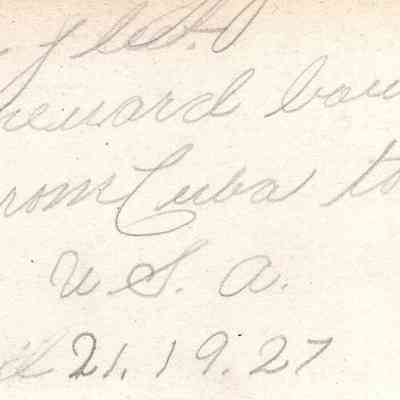 fleet
meward bou
rom Cuba to
U.S. A.
il 21, 19.27